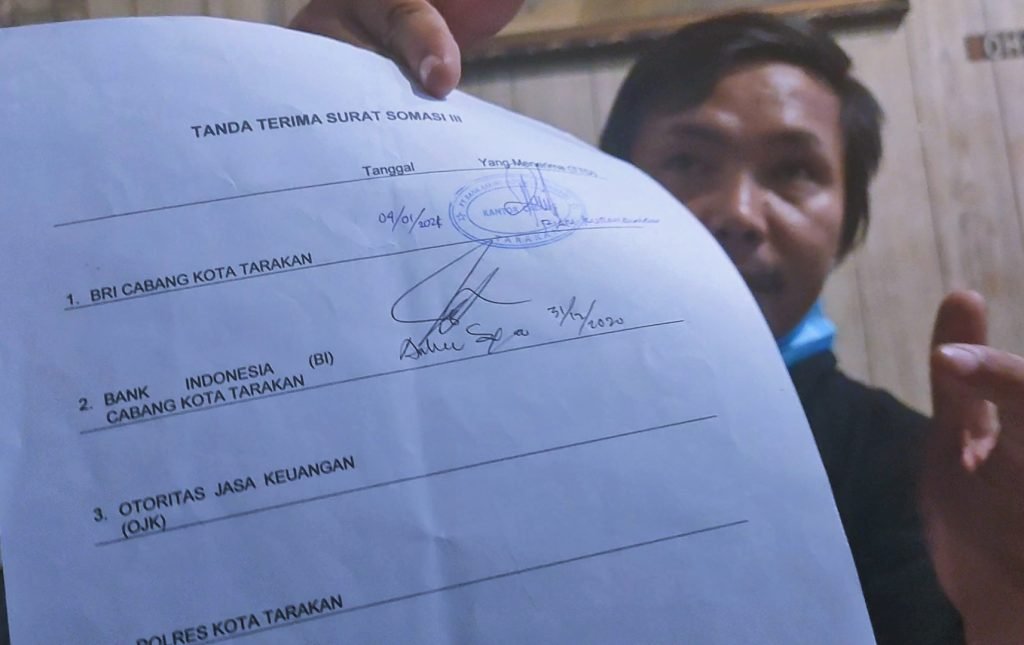 TANDA TERIMA SURAT SOMASI III
Tanggal Yang Menerima (TTD)
04/01/2021
KANTOR
TARAKAN
1. BRI CABANG KOTA TARAKAN
31/12/2020
2. BANK INDONESIA (BI)
CABANG KOTA TARAKAN
3. OTORITAS JASA KEUANGAN
(OJK)
POLRES KOTA TARAKAN
OH